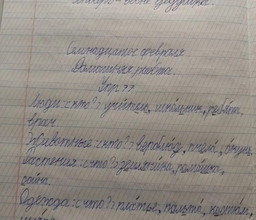 Семнадцатое февраля
Домашняя работа.
Упр. 77
Люди:(кто?): учитель, школьник, ребята,
врач.
Животные:(кто?): верблюд, пчела, окунь.
Растения:(что?): земляника, ромашка,
сосна.
Одежда:(что?): платье, пальто, костюм,